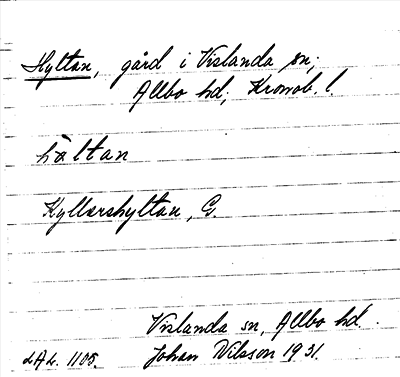 Hyltan, gård i Vislanda sn;
Allbo hd; Kronob. l.
hältan
Kyllarshyltan, G.
Vislanda sn, Allbo hd.
LAL. 1105. Johan Nilsson 1931.